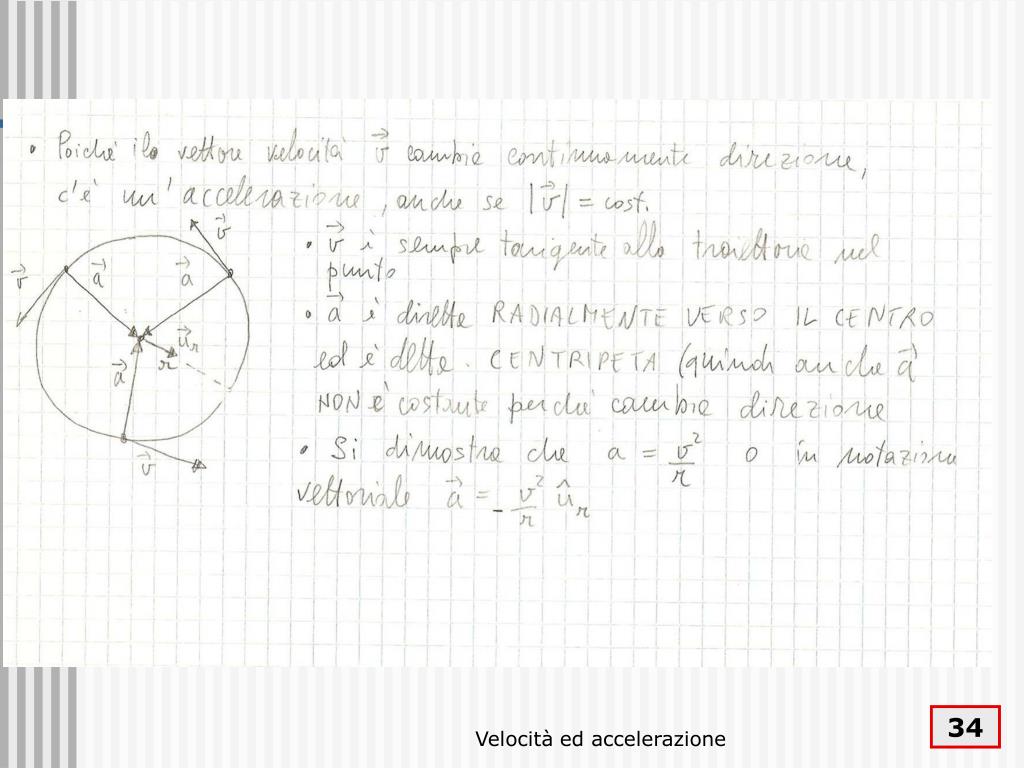 • Poiché il vettore velocità v⃗ cambia continuamente direzione,
c'è un' accelerazione, anche se |v⃗| = cost.
v⃗
v⃗
a⃗
a⃗
u⃗r
r
a⃗
v⃗
• v⃗ è sempre tangente alla traiettoria nel
punto
• a⃗ è diretta RADIALMENTE VERSO IL CENTRO
ed è detta. CENTRIPETA (quindi anche a⃗
NON è costante perché cambia direzione
• Si dimostra che a = v²/r o in notazione
vettoriale a⃗ = - v²/r ûr
Velocità ed accelerazione
34